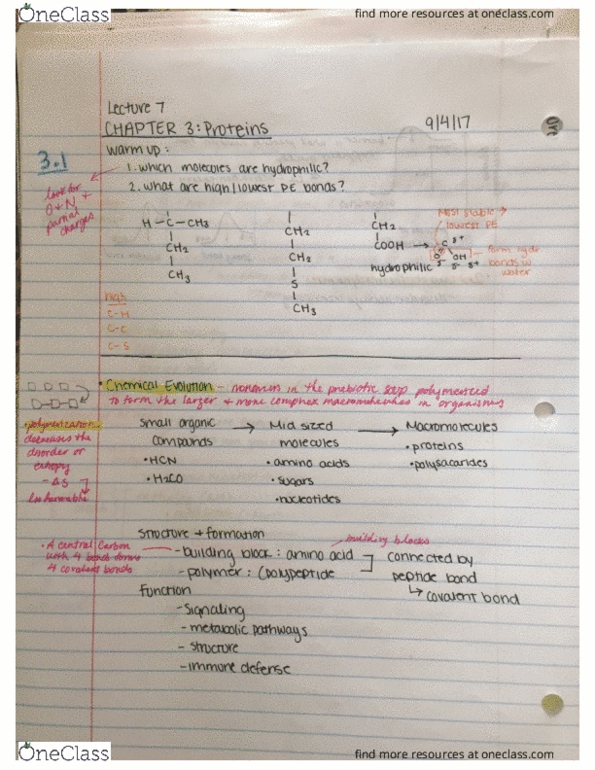 OneClass
find more resources at oneclass.com
Lecture 7
CHAPTER 3: Proteins
9/4/17
3.1
warm up:
1. which molecules are hydrophilic?
2. what are high/lowest PE bonds?
look for
O + N +
partial
charges
Most stable →
lowest PE
H – C – CH3
CH2
CH3
CH2
CH2
S
CH3
CH2
COOH →
hydrophilic
C δ+
O OH
δ- δ- δ+
form hydr
bonds w
water
high
C-H
C-C
C-S
Chemical Evolution - monomers in the prebiotic soup polymerized
to form the larger + more complex macromolecules in organisms
• polymerization
decreases the
disorder or
entropy
- ΔS
less favorable
small organic → Mid sized → Macromolecules
compounds molecules • proteins
• HCN • amino acids • polysacarides
• H2CO • sugars
• nucleotides
structure + formation
building blocks
• A central Carbon
with 4 bonds forms
4 covalent bonds
- building block: amino acid
- polymer: (poly)peptide
connected by
peptide bond
↳ covalent bond
Function
- signaling
- metabolic pathways
- structure
- immune defense
OneClass
find more resources at oneclass.com